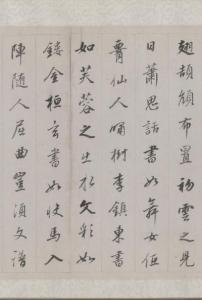 翅頡頏布置初雲之見
日蕭思話書如舞女低
霄仙人嘯樹李鎮東書
如芙蓉之出水文彩如
鏤金桓玄書如快馬入
陣隨人屈曲豈須文譜